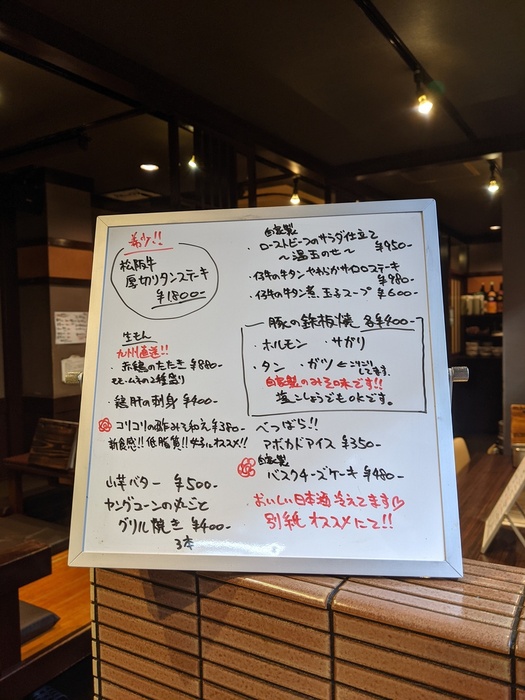 希少!!
松阪牛
厚切りタンステーキ
¥1800-
生もん
九州直送!!
・赤鶏のたたき ¥880-
モモ・ムネの2種盛り
・鶏肝の刺身 ¥400-
コリコリの酢みそ和え ¥380-
新食感!! 低脂質!! 女子にオススメ!!
山芋バター ¥500-
ヤングコーンの丸ごと
グリル焼き ¥400-
3本
自家製
・ローストビーフのサラダ仕立て
～温玉のせ～ ¥950-
・仔牛の牛タン やわらかサイコロステーキ
¥980-
・仔牛の牛タン煮 玉子スープ ¥600-
豚の鉄板焼 各¥400-
・ホルモン ・サガリ
・タン ・ガツ ← こりこり
してます。
自家製のみそ味です!!
塩こしょうでもOKです。
べつばら!!
アボカドアイス ¥350-
自家製
バスクチーズケーキ ¥480-
おいしい日本酒冷えてます♡
別紙オススメにて!!